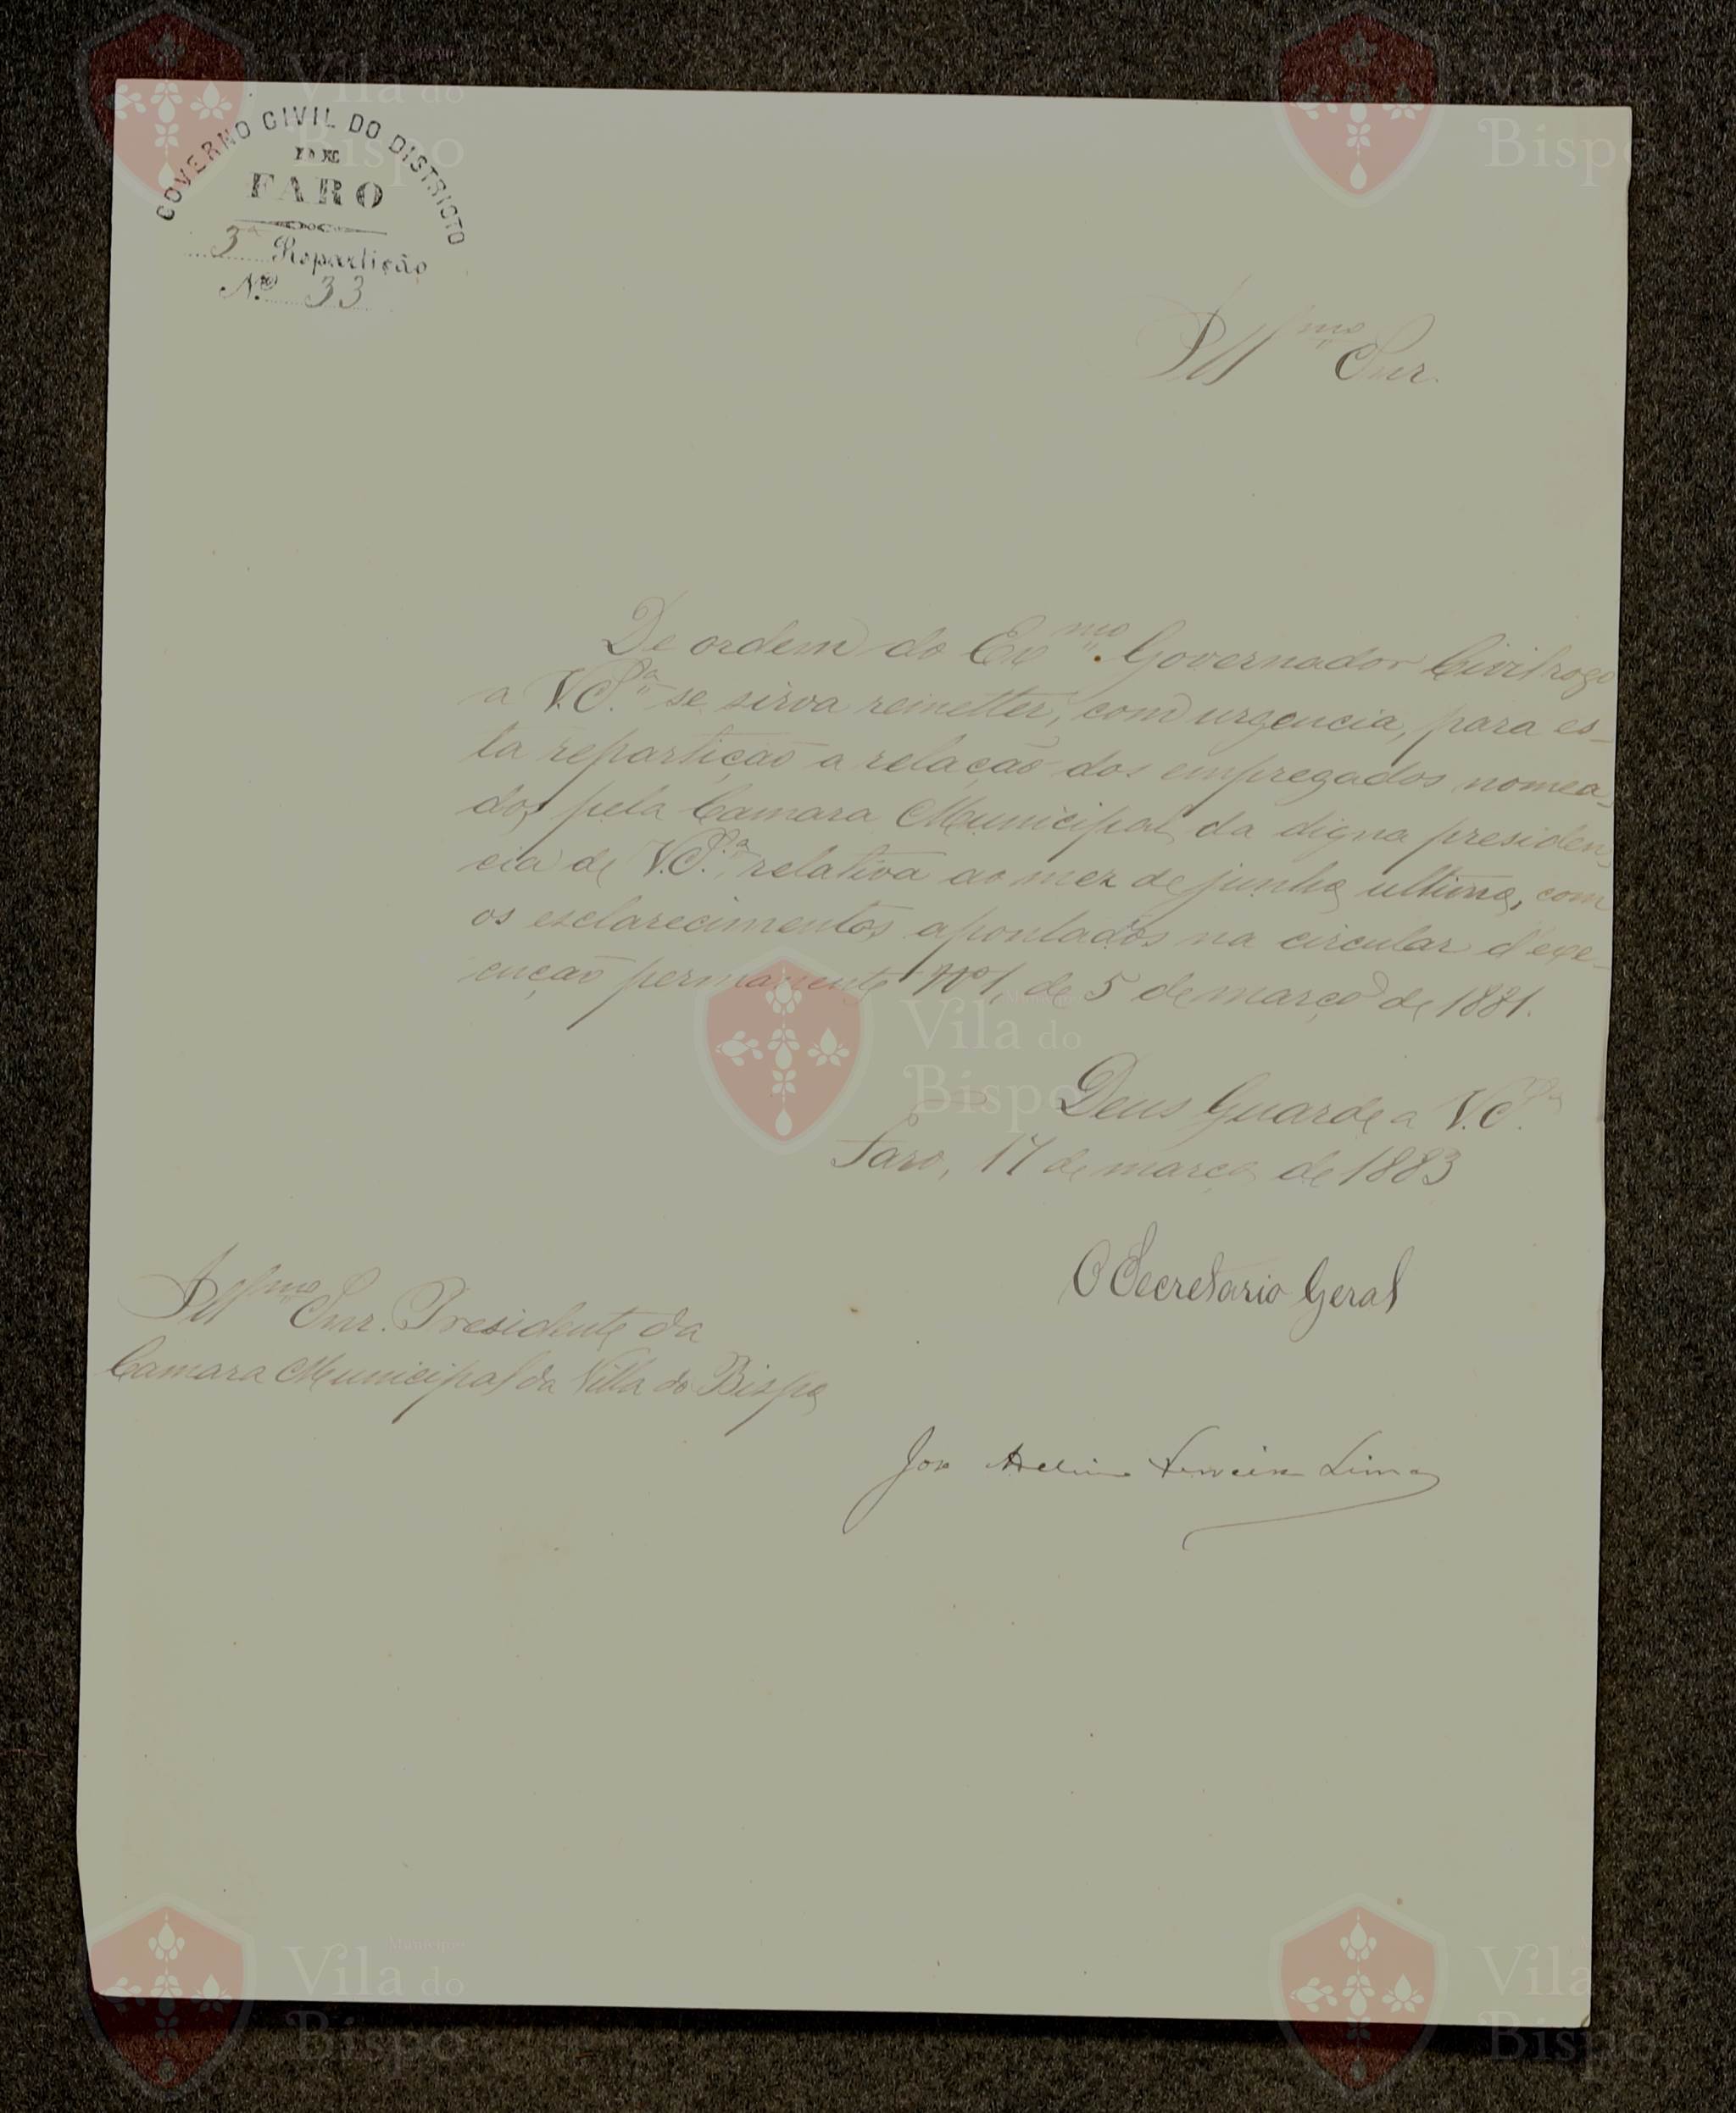 GOVERNO CIVIL DO DISTRICTO
DE
FARO
3ª Repartição
Nº 33
Illmo Snr.
De ordem do Exmo. Governador Civil rogo
a V.Sª se sirva remetter, com urgencia, para es-
ta repartição a relação dos empregados nomea-
dos pela Camara Municipal da digna presiden-
cia de V.Sª, relativa ao mez de junho ultimo, com
os esclarecimentos apontados na circular d'exe-
cução permanente Nº 1, de 5 de março de 1881.
Deus Guarde a V.Sª
Faro, 17 de março de 1883
O Secretario Geral
Illmo Snr. Presidente da
Camara Municipal da Villa do Bispo
Ferreira Lima
Município
Vila do
Bispo